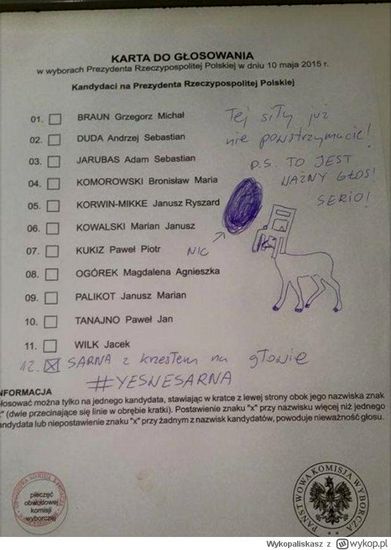 KARTA DO GŁOSOWANIA
w wyborach Prezydenta Rzeczypospolitej Polskiej w dniu 10 maja 2015 r.
Kandydaci na Prezydenta Rzeczypospolitej Polskiej
01. BRAUN Grzegorz Michał
02. DUDA Andrzej Sebastian
03. JARUBAS Adam Sebastian
04. KOMOROWSKI Bronisław Maria
05. KORWIN-MIKKE Janusz Ryszard
06. KOWALSKI Marian Janusz
07. KUKIZ Paweł Piotr
08. OGÓREK Magdalena Agnieszka
09. PALIKOT Janusz Marian
10. TANAJNO Paweł Jan
11. WILK Jacek
12. SARNA z krzesłem na głowie
#YESWESARNA
Tej siły już
nie powstrzymacie!
P.S. TO JEST
WAŻNY GŁOS!
SERIO!
NIC
NFORMACJA
łosować można tylko na jednego kandydata, stawiając w kratce z lewej strony obok jego nazwiska znak
x" (dwie przecinające się linie w obrębie kratki). Postawienie znaku "x" przy nazwisku więcej niż jednego
andydata lub niepostawienie znaku "x" przy żadnym z nazwisk kandydatów, powoduje nieważność głosu.
pieczęć
obwodowej
komisji
wyborczej
PAŃSTWOWA KOMISJA WYBORCZA
Wykopaliskasz z wykop.pl